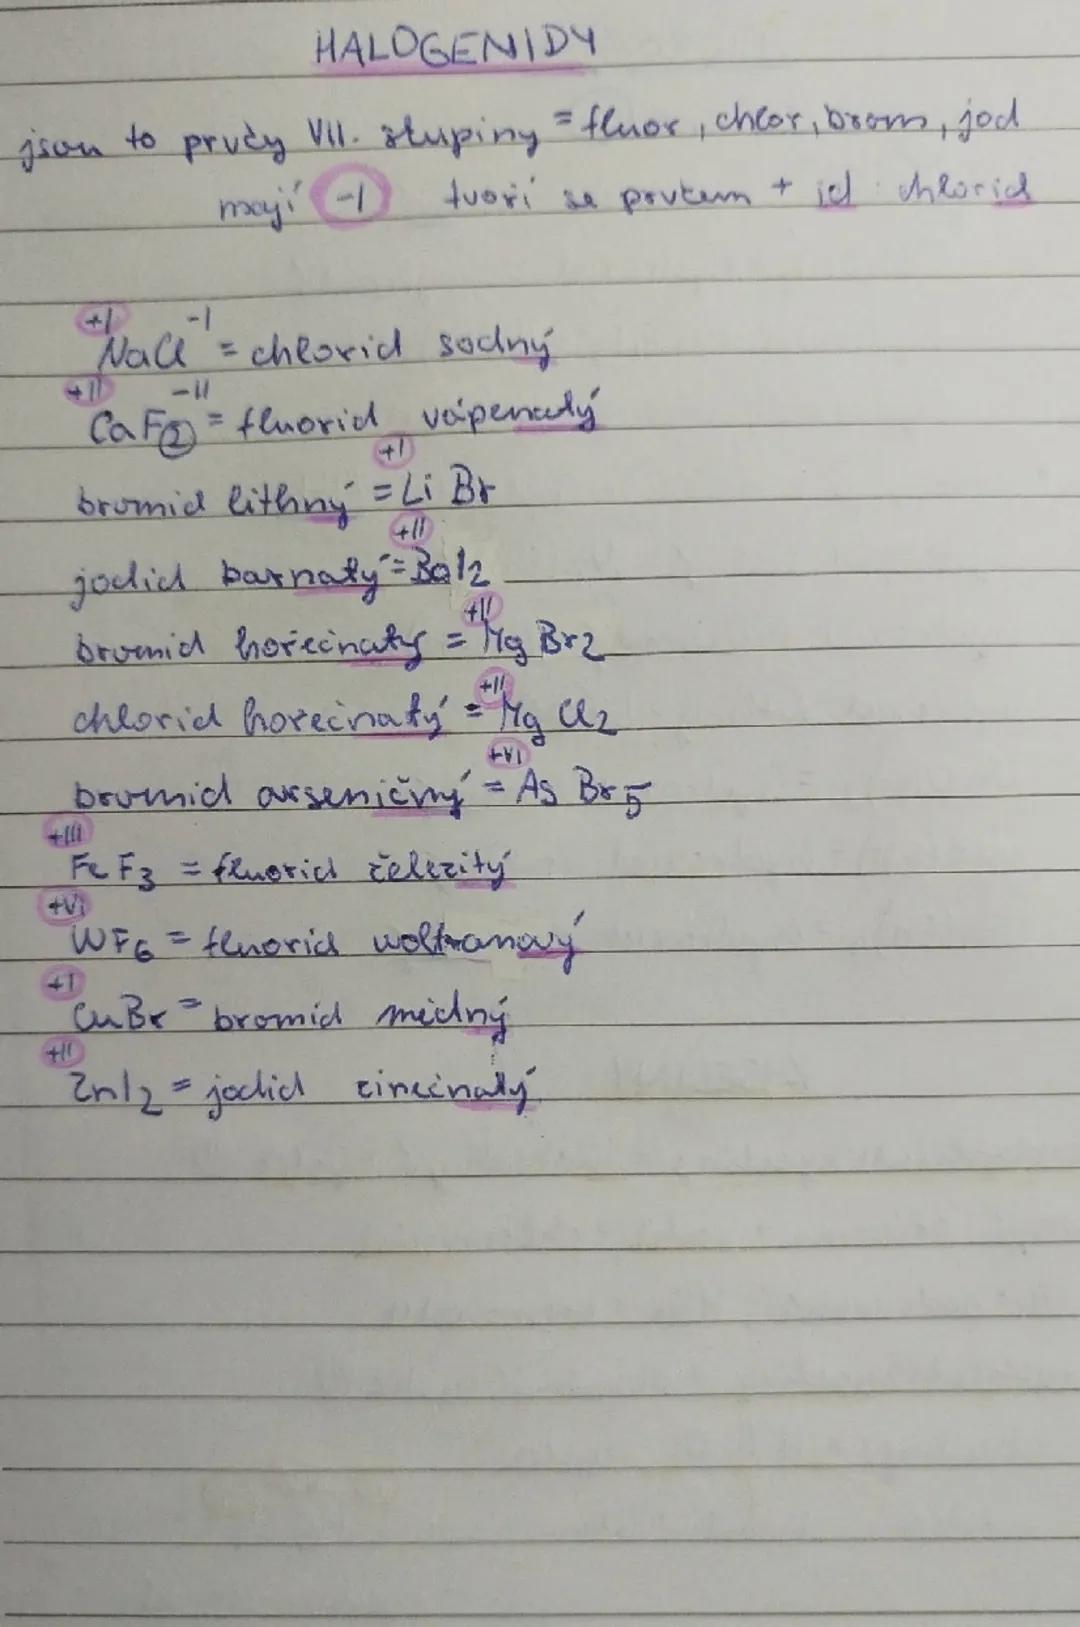 HALOGENIDY
jsou to prvky VII. skupiny = fluor, chlor, brom, jod
mají -I tvoří se prvkem + id : chlorid
+I -I
NaCl = chlorid sodný
+II -II
CaF2 = fluorid vápenatý
+I
bromid lithný = Li Br
+II
jodid barnatý = BaI2
+II
bromid hořečnatý = Mg Br2
+II
chlorid horečnatý = Mg Cl2
+VI
bromid arseničný = As Br5
+III
Fe F3 = fluorid železitý
+VI
WF6 = fluorid wolframový
+I
CuBr = bromid mědný
+II
ZnI2 = jodid zinečnatý